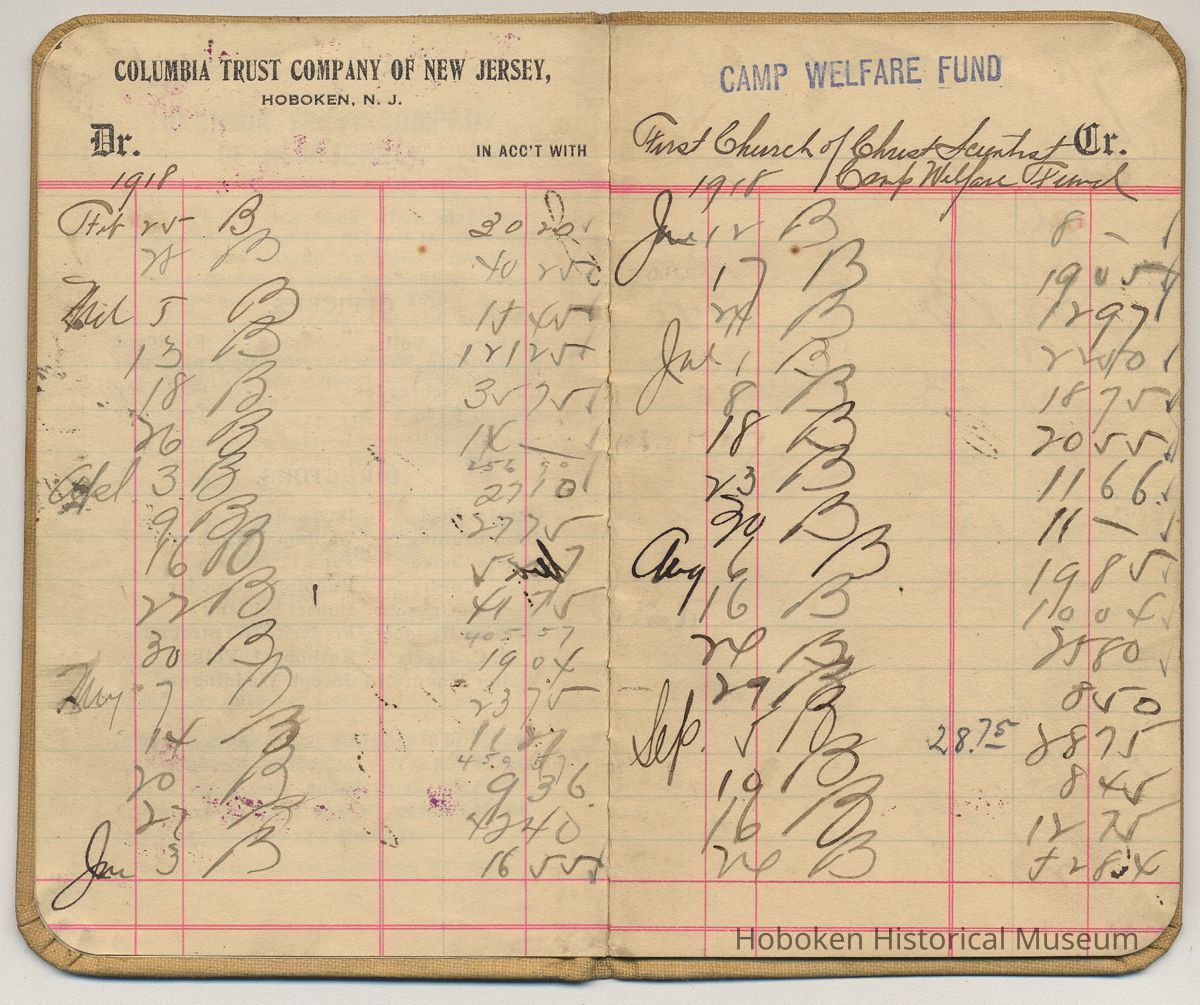 COLUMBIA TRUST COMPANY OF NEW JERSEY,
HOBOKEN, N. J.
Dr. IN ACC'T WITH
1918
Feb 25 B 30 20
28 B 40 25
Mch 5 B 15 45
13 B 121 25
18 B 35 75
26 B 14 —
Apl 3 B 27 10
9 B 27 75
16 B
22 B 41 75
405 57
30 B 19 04
May 7 B 23 75
14 B 11 21
459 57
20 B 9 36
27 B 42 40
Jun 3 B 16 55
CAMP WELFARE FUND
First Church of Christ Scientist Cr.
Camp Welfare Fund
1918
Jun 12 B 8 —
17 B 19 05
24 B 12 97
Jul 1 B 22 50
8 B 18 75
18 B 20 55
23 B 11 66
30 B 11 —
Aug 6 B 19 85
16 B 10 04
24 B 25 80
29 B 8 50
Sep. 5 B 28.75 28 75
10 B 8 45
16 B 12 75
24 B
Hoboken Historical Museum